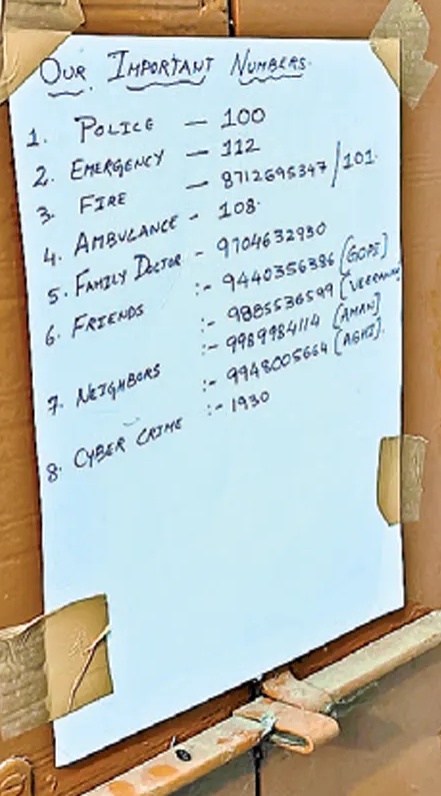 OUR IMPORTANT NUMBERS.
1. POLICE — 100
2. EMERGENCY — 112
3. FIRE — 8712695347/101.
4. AMBULANCE - 108.
5. FAMILY DOCTOR - 9704632930
6. FRIENDS :- 9440356386 [GOPI]
:- 9885536599
:- 9989984114 [AMAN]
7. NEIGHBORS :- 9948005664
8. CYBER CRIME :- 1930